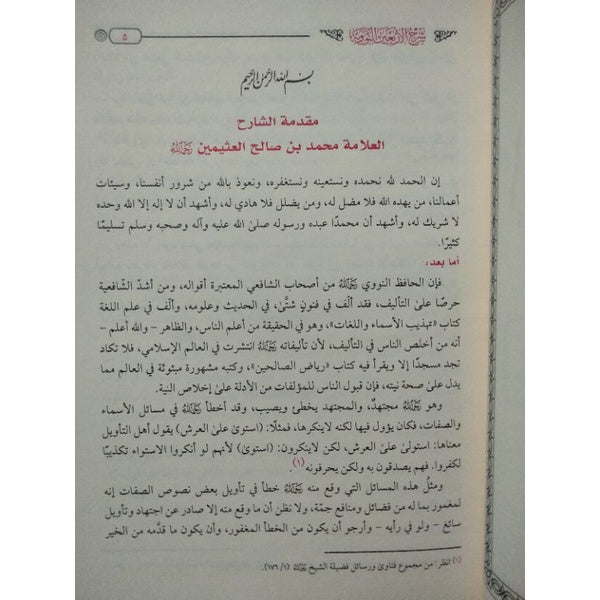 شرح الأربعين النووية
٥
بسم الله الرحمن الرحيم
مقدمة الشارح
العلامة محمد بن صالح العثيمين رَحِمَهُ اللهُ
إن الحمد لله نحمده ونستعينه ونستغفره، ونعوذ بالله من شرور أنفسنا، وسيئات
أعمالنا، من يهده الله فلا مضل له، ومن يضلل فلا هادي له، وأشهد أن لا إله إلا الله وحده
لا شريك له، وأشهد أن محمدًا عبده ورسوله صلى الله عليه وآله وصحبه وسلم تسليمًا
كثيرًا.
أما بعد:
فإن الحافظ النووي رَحِمَهُ اللهُ من أصحاب الشافعي المعتبرة أقواله، ومن أشدّ الشّافعية
حرصًا على التأليف، فقد ألّف في فنونٍ شتَّى، في الحديث وعلومه، وألّف في علم اللغة
كتاب «تهذيب الأسماء واللغات»، وهو في الحقيقة من أعلم الناس، والظاهر – والله أعلم –
أنه من أخلص الناس في التأليف، لأن تأليفاته رَحِمَهُ اللهُ انتشرت في العالم الإسلامي، فلا تكاد
تجد مسجدًا إلا ويقرأ فيه كتاب «رياض الصالحين»، وكتبه مشهورة مبثوثة في العالم مما
يدل على صحة نيته، فإن قبول الناس للمؤلفات من الأدلة على إخلاص النية.
وهو رَحِمَهُ اللهُ مجتهدٌ، والمجتهد يخطئ ويصيب، وقد أخطأ رَحِمَهُ اللهُ في مسائل الأسماء
والصفات، فكان يؤول فيها لكنه لاينكرها، فمثلًا: (استوىٰ على العرش) يقول أهل التأويل
معناها: استولىٰ على العرش، لكن لاينكرون: (استوىٰ) لأنهم لو أنكروا الاستواء تكذيبًا
لكفروا. فهم يصدقون به ولكن يحرفونه (١).
ومثلُ هذه المسائل التي وقع منه رَحِمَهُ اللهُ خطأ في تأويل بعض نصوص الصفات إنه
لمغمور بما له من فضائل ومنافع جمّة، ولا نظن أن ما وقع منه إلا صادر عن اجتهاد وتأويل
سائغ – ولو في رأيه – وأرجو أن يكون من الخطأ المغفور، وأن يكون ما قدّمه من الخير
(١) انظر: من مجموع فتاوىٰ ورسائل فضيلة الشيخ رَحِمَهُ اللهُ (١/ ١٧٦).